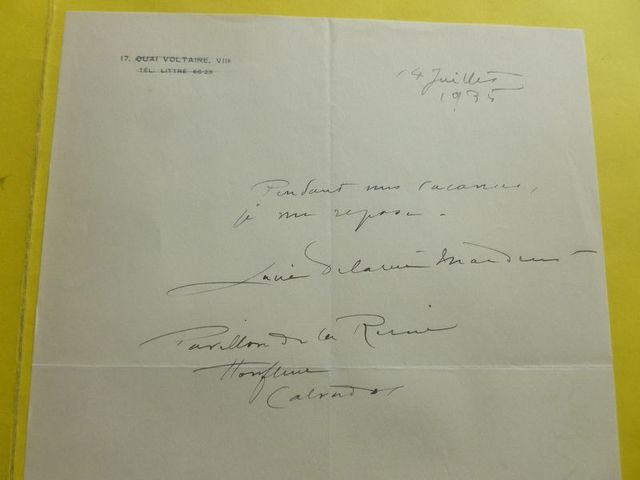 17, QUAI VOLTAIRE, VIIe
TÉL. LITTRÉ 66-23
14 Juillet
1935
Pendant mes vacances,
je me repose.
Lucie Delarue Mardrus
Pavillon de la Reine
Honfleur
Calvados